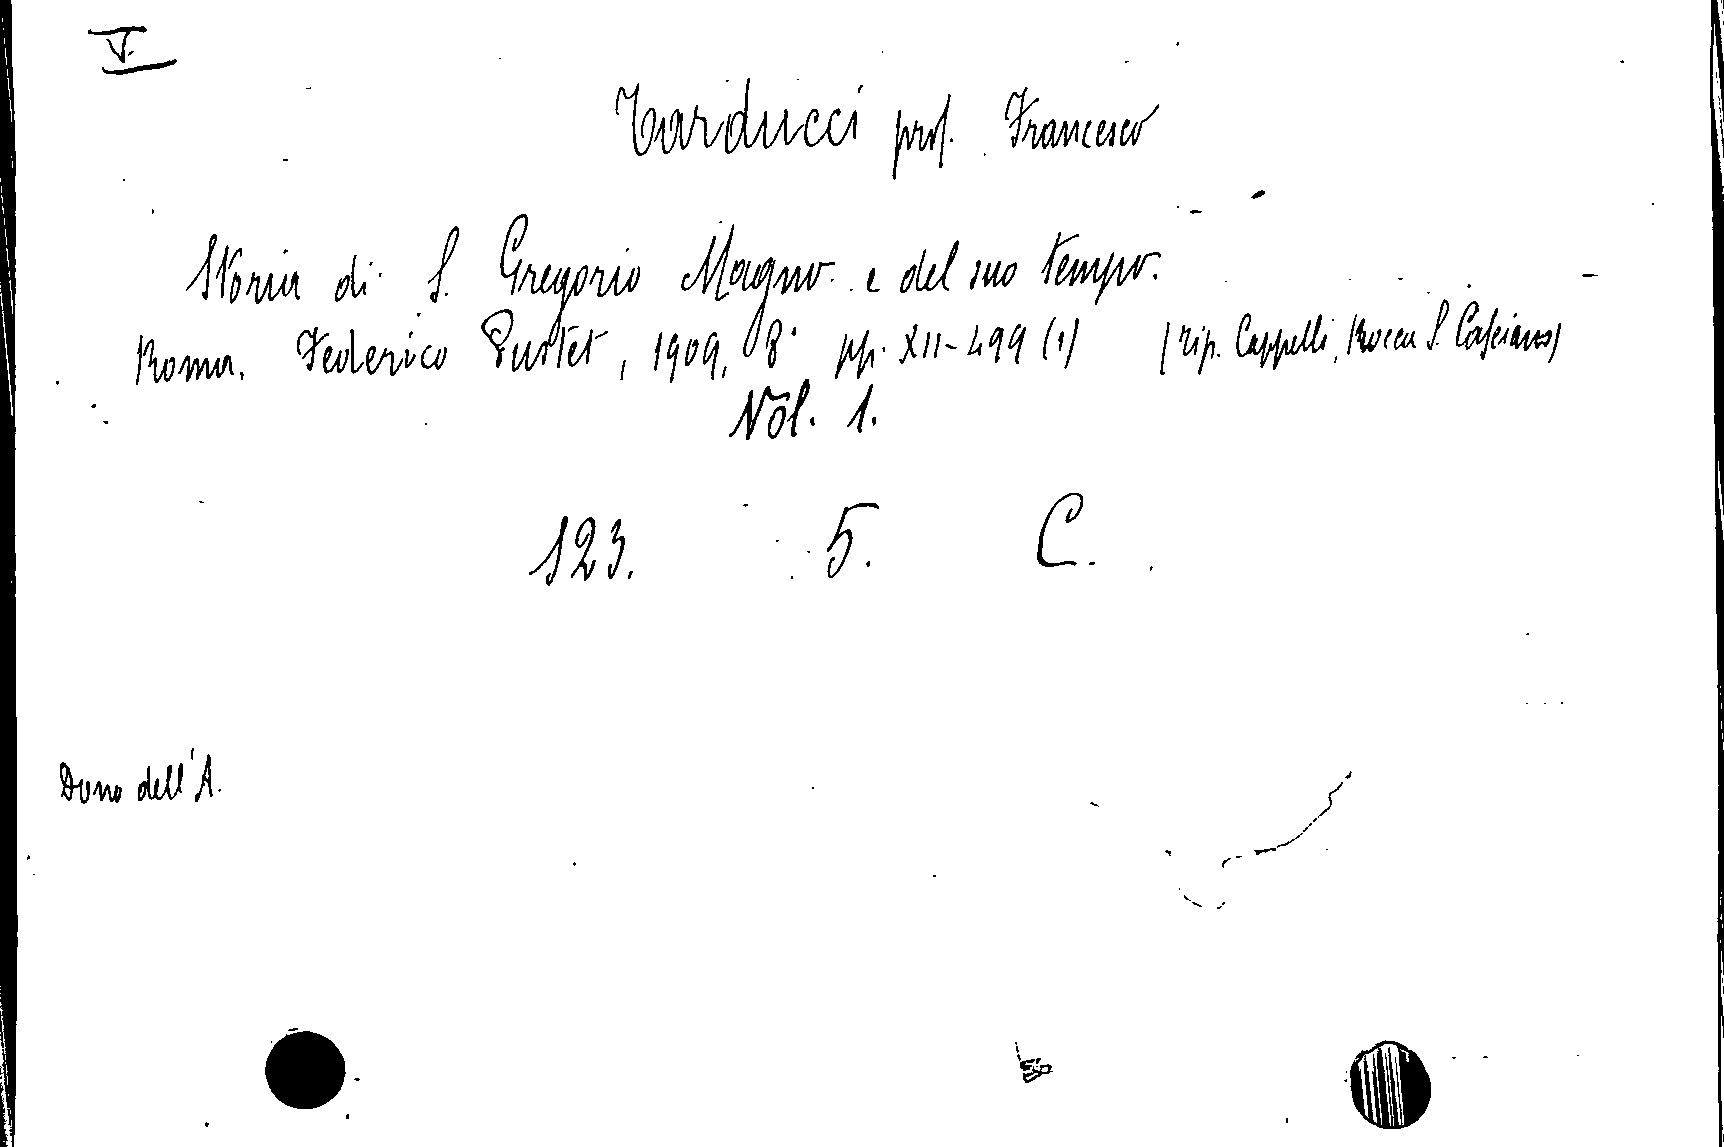 V.
Tarducci prof. Francesco
Storia di S. Gregorio Magno e del suo tempo.
Roma. Federico Pustet, 1909, 8° pp. XII-499 (1) (tip. Cappelli, Rocca S. Casciano)
Vol. 1.
123. 5. C.
Dono dell'A.